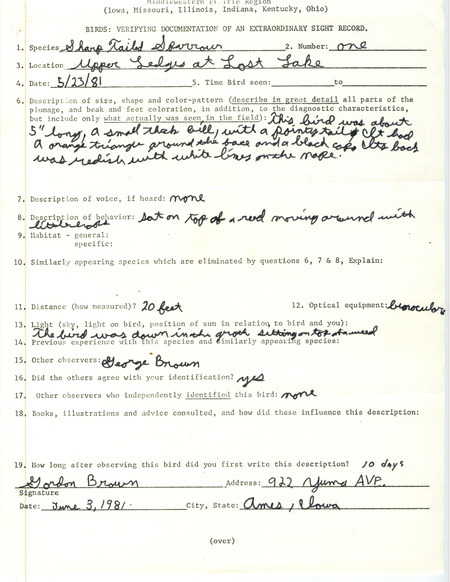 Middlewestern Prairie Region
(Iowa, Missouri, Illinois, Indiana, Kentucky, Ohio)
BIRDS: VERIFYING DOCUMENTATION OF AN EXTRAORDINARY SIGHT RECORD.
1. Species Sharp Tailed Sparrow 2. Number: one
3. Location Upper Ledges at Lost Lake
4. Date: 5/23/81 5. Time Bird seen: to
6. Description of size, shape and color-pattern (describe in great detail all parts of the
plumage, and beak and feet coloration, in addition, to the diagnostic characteristics,
but include only what actually was seen in the field): This bird was about
5" long, a small thick bill, with a pointy tail. It had
a orange triangle around the face and a black cap. Its back
was redish with white lines on the nape.
7. Description of voice, if heard: none
8. Description of behavior: sat on top of a reed moving around with
little hops
9. Habitat - general:
specific:
10. Similarly appearing species which are eliminated by questions 6, 7 & 8, Explain:
11. Distance (how measured)? 20 feet 12. Optical equipment: binoculars
13. Light (sky, light on bird, position of sun in relation to bird and you):
The bird was down in the sitting on top of a weed
14. Previous experience with this species and similarly appearing species:
15. Other observers: George Brown
16. Did the others agree with your identification? yes
17. Other observers who independently identified this bird: none
18. Books, illustrations and advice consulted, and how did these influence this description:
19. How long after observing this bird did you first write this description? 10 days
Gordon Brown Address: 922 Yuma AVE.
Signature
Date: June 3, 1981. City, State: Ames, Iowa
(over)